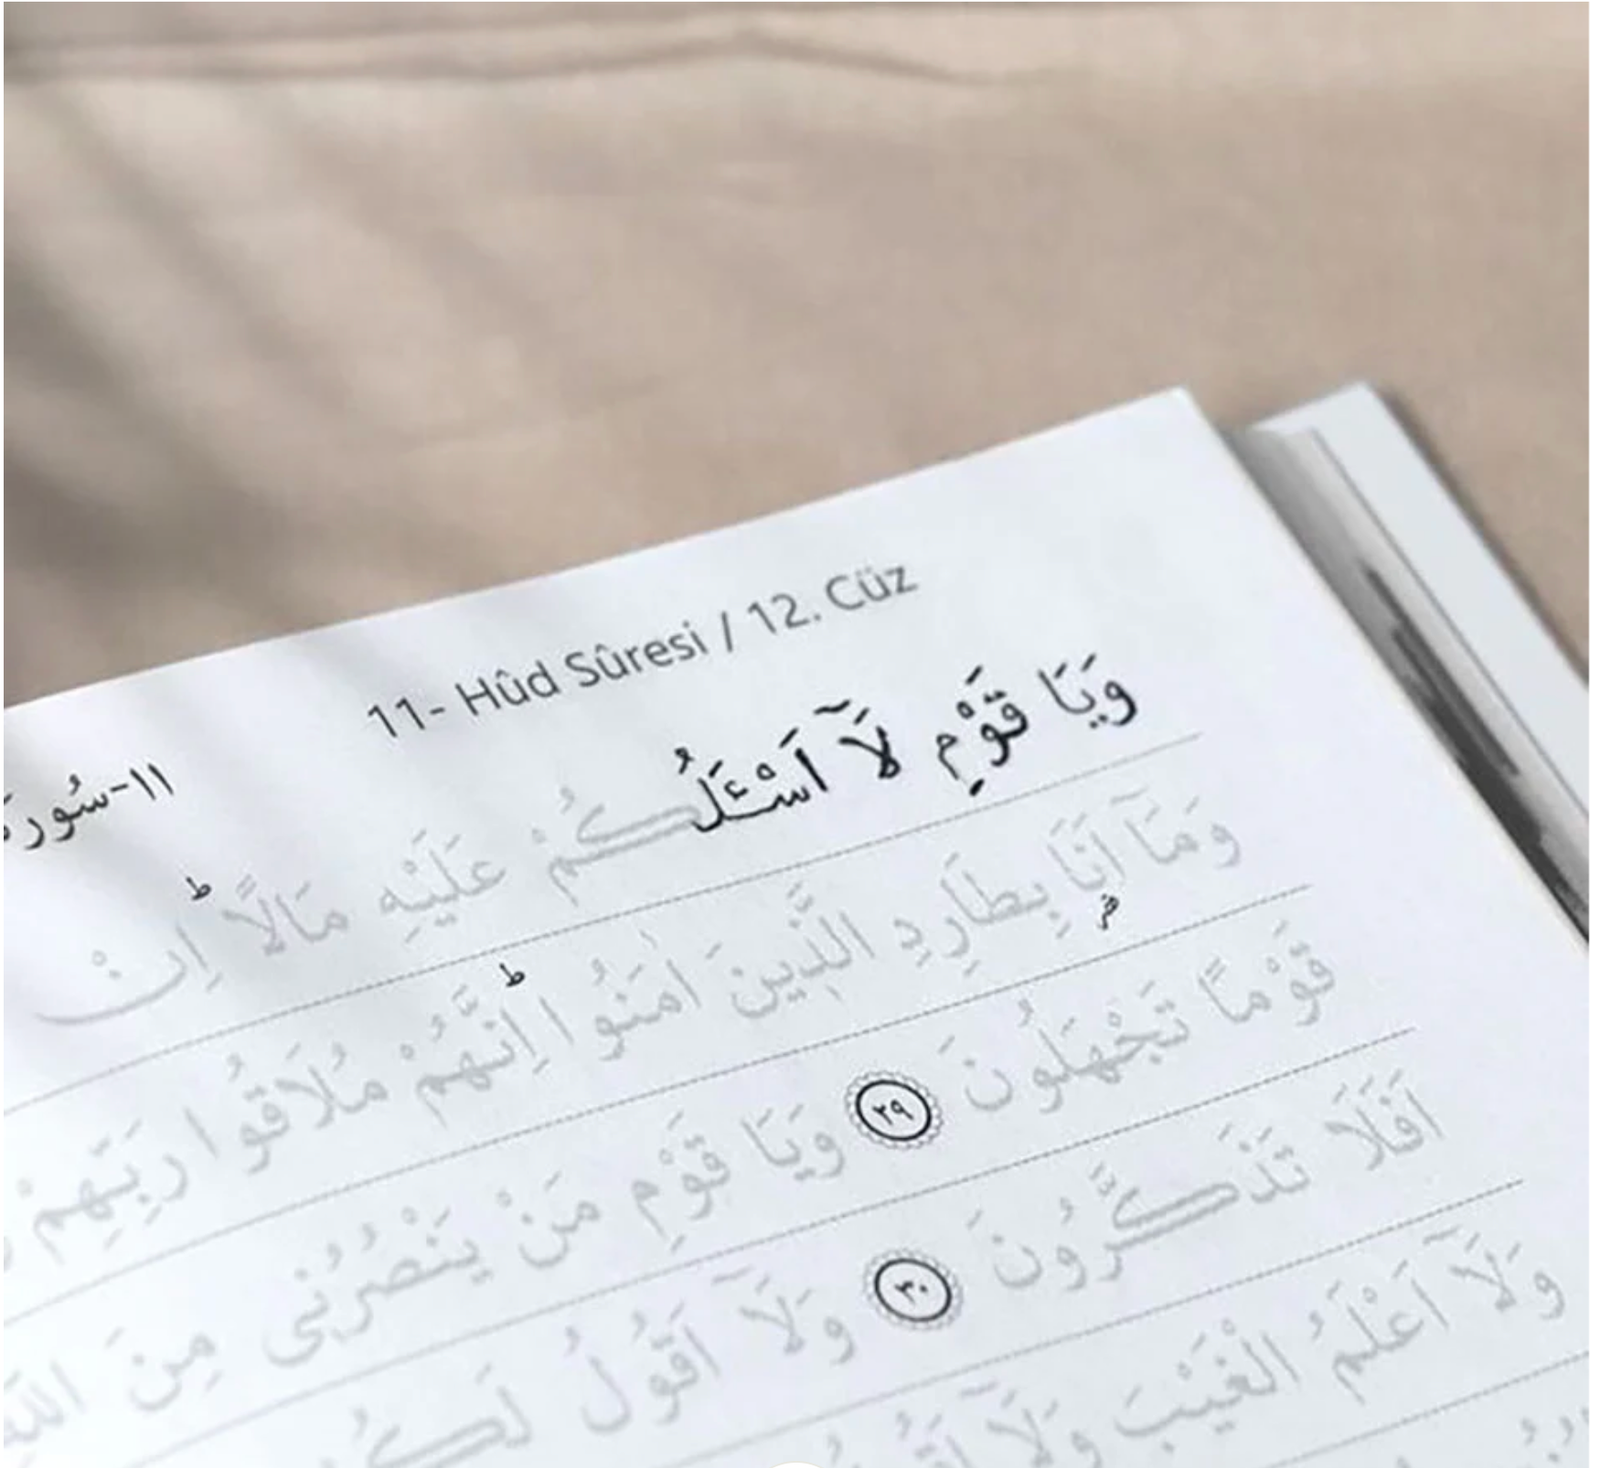 11- Hûd Sûresi / 12. Cüz
١١-سُورَة
وَيَا قَوْمِ لَٓا اَسْـَٔلُكُمْ عَلَيْهِ مَالًا ط اِنْ
وَمَٓا اَنَا۬ بِطَارِدِ الَّذ۪ينَ اٰمَنُوا ط اِنَّهُمْ مُلَاقُوا رَبِّهِمْ
قَوْمًا تَجْهَلُونَ ٢٩ وَيَا قَوْمِ مَنْ يَنْصُرُن۪ى مِنَ اللّٰهِ
اَفَلَا تَذَكَّرُونَ ٣٠ وَلَٓا اَقُولُ
وَلَٓا اَعْلَمُ الْغَيْبَ وَلَٓا